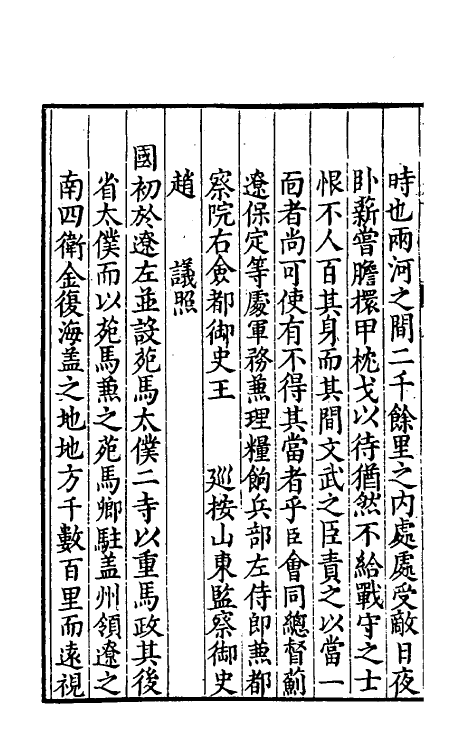 時也兩河之間二千餘里之內處處受敵日夜
臥薪嘗膽擐甲枕戈以待猶然不給戰守之士
恨不人百其身而其間文武之臣責之以當一
面者尚可使有不得其當者乎臣會同總督薊
遼保定等處軍務兼理糧餉兵部左侍郎兼都
察院右僉都御史王　　廵按山東監察御史
趙　議照
國初於遼左並設苑馬太僕二寺以重馬政其後
省太僕而以苑馬兼之苑馬卿駐盖州領遼之
南四衛金復海盖之地地方千數百里而遠視